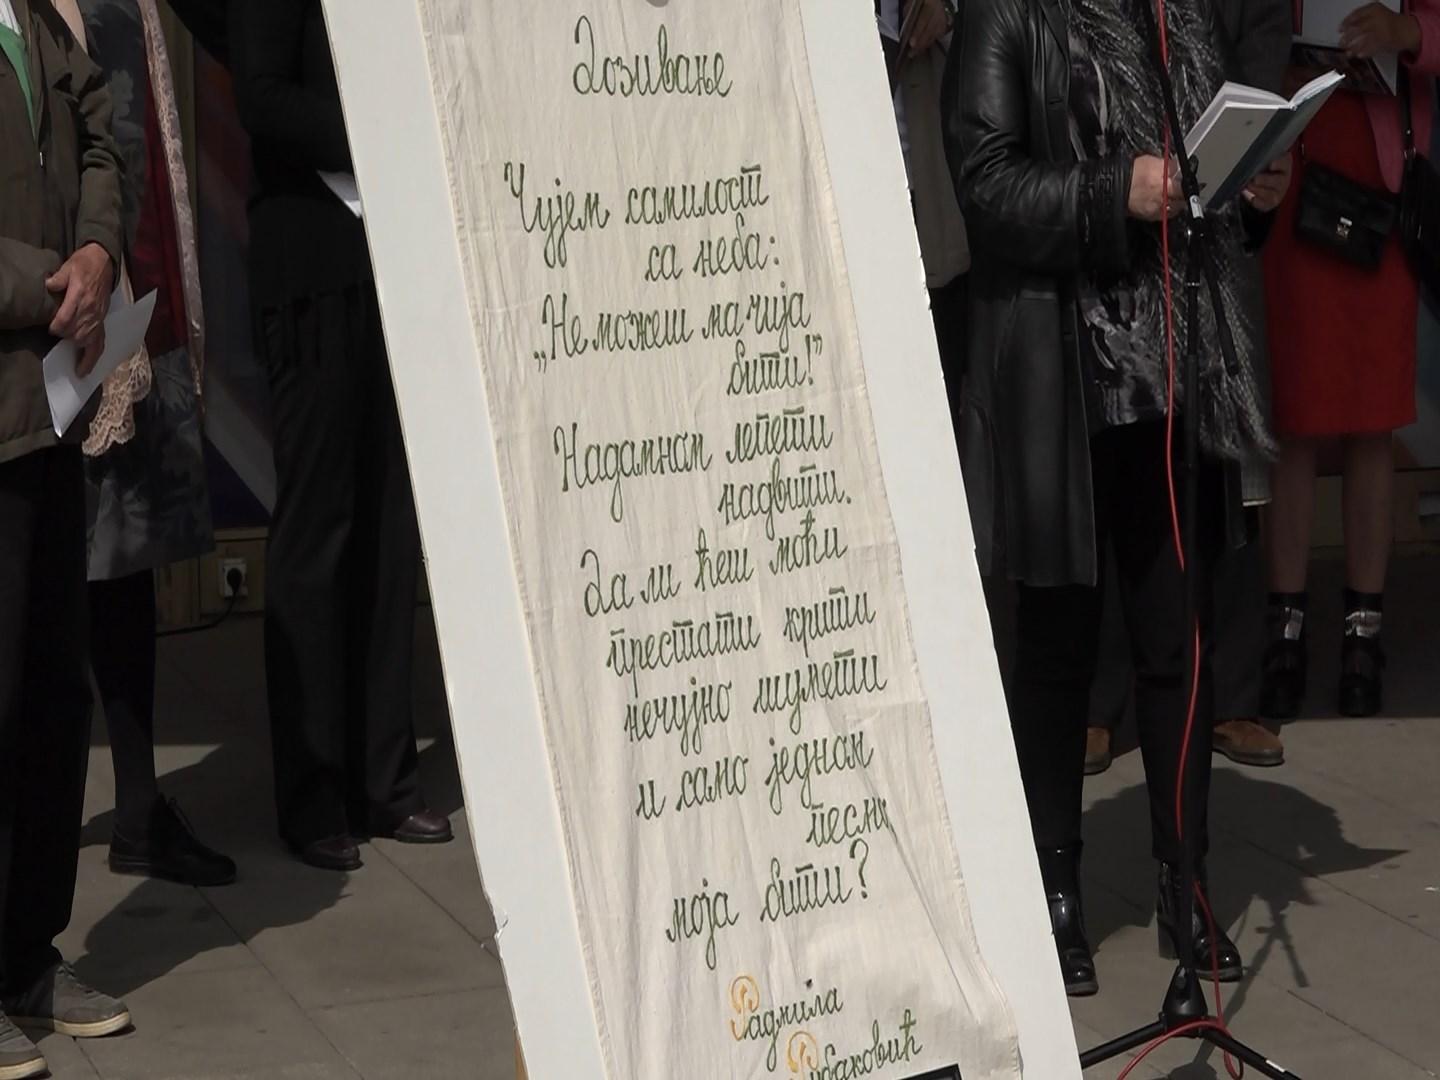 Дозивање
Чујем самилост
са неба:
„Не можеш ма чија
бити!”
Надамном лепети
надвити.
Да ли ћеш моћи
престати крити
нечујно шумети
и само једном
песмо
моја бити?
Радмила
Рибаковић